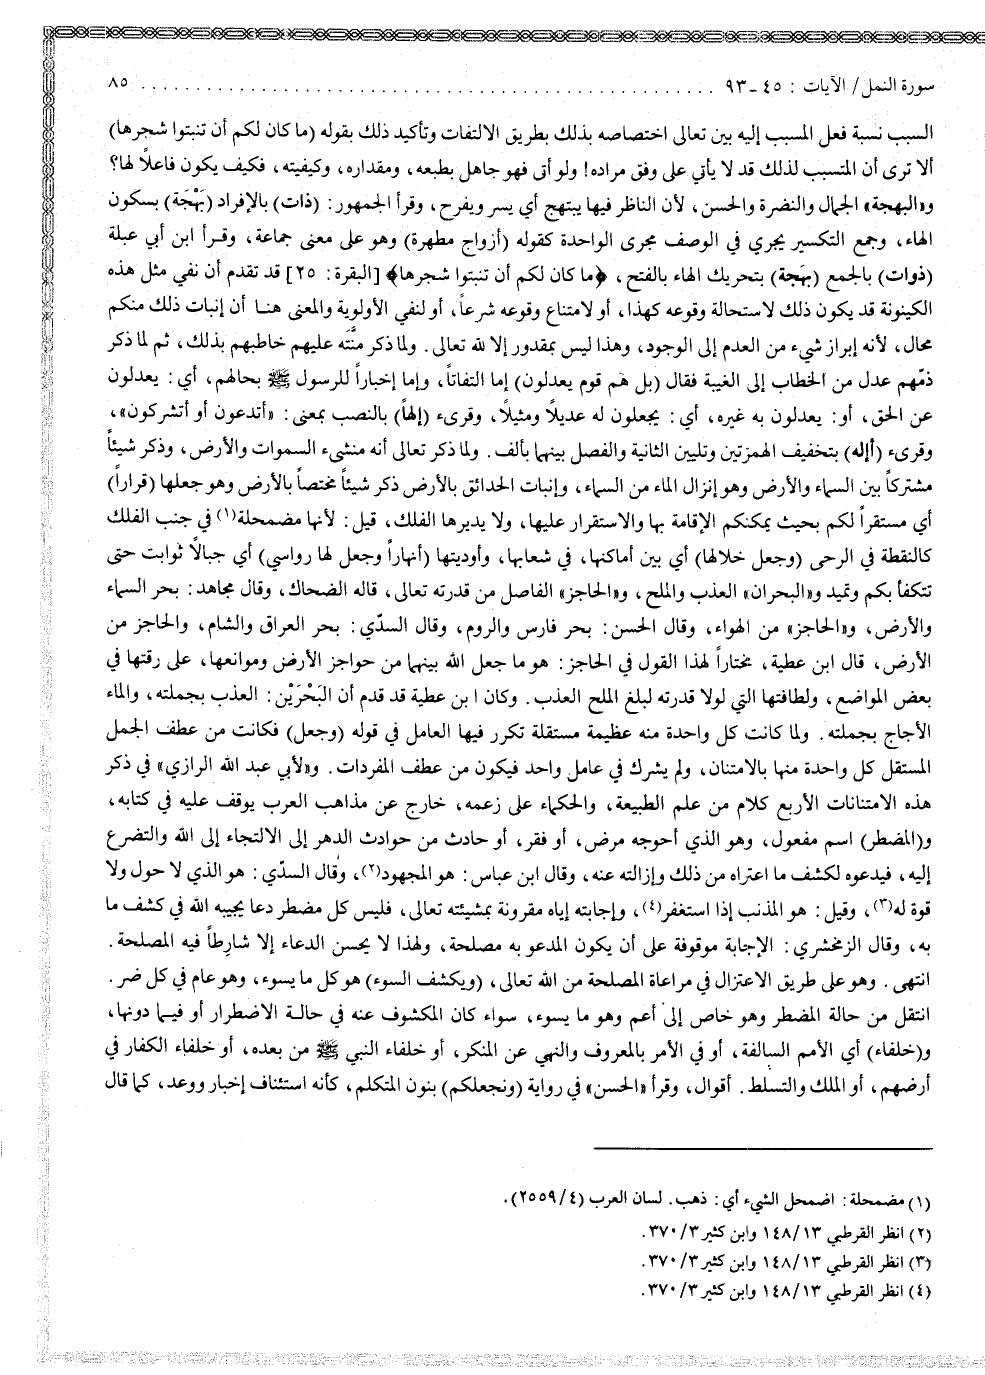 سورة النمل/ الآيات : ٤٥ ـ ٩٣ . . . . . . . . . . . . . . . . . . . . . . . . . . . . . . . . . . . . . . . . ٨٥
السبب نسبة فعل المسبب إليه بين تعالى اختصاصه بذلك بطريق الالتفات وتأكيد ذلك بقوله (ما كان لكم أن تنبتوا شجرها)
ألا ترى أن المتسبب لذلك قد لا يأتي على وفق مراده! ولو أتى فهو جاهل بطبعه، ومقداره، وكيفيته، فكيف يكون فاعلاً لها؟
و«البهجة» الجمال والنضرة والحسن، لأن الناظر فيها يبتهج أي يسر ويفرح، وقرأ الجمهور: (ذات) بالإفراد (بَهْجَة) بسكون
الهاء، وجمع التكسير يجري في الوصف مجرى الواحدة كقوله (أزواج مطهرة) وهو على معنى جماعة، وقرأ ابن أبي عبلة
(ذوات) بالجمع (بهَجة) بتحريك الهاء بالفتح، ﴿ما كان لكم أن تنبتوا شجرها﴾ [البقرة: ٢٥] قد تقدم أن نفي مثل هذه
الكينونة قد يكون ذلك لاستحالة وقوعه كهذا، أو لامتناع وقوعه شرعاً، أو لنفي الأولوية والمعنى هنا أن إنبات ذلك منكم
محال، لأنه إبراز شيء من العدم إلى الوجود، وهذا ليس بمقدور إلا لله تعالى. ولما ذكر منَّته عليهم خاطبهم بذلك، ثم لما ذكر
ذمّهم عدل من الخطاب إلى الغيبة فقال (بل هم قوم يعدلون) إما التفاتاً، وإما إخباراً للرسول ﷺ بحالهم، أي: يعدلون
عن الحق، أو: يعدلون به غيره، أي: يجعلون له عديلاً ومثيلاً، وقرىء (إلهاً) بالنصب بمعنى: «أتدعون أو أتشركون»،
وقرىء (أإله) بتخفيف الهمزتين وتليين الثانية والفصل بينهما بألف. ولما ذكر تعالى أنه منشىء السموات والأرض، وذكر شيئاً
مشتركاً بين السماء والأرض وهو إنزال الماء من السماء، وإنبات الحدائق بالأرض ذكر شيئاً مختصاً بالأرض وهو جعلها (قراراً)
أي مستقراً لكم بحيث يمكنكم الإقامة بها والاستقرار عليها، ولا يديرها الفلك، قيل: لأنها مضمحلة(١) في جنب الفلك
كالنقطة في الرحى (وجعل خلالها) أي بين أماكنها، في شعابها، وأوديتها (أنهاراً وجعل لها رواسي) أي جبالاً ثوابت حتى
تتكفأ بكم وتميد و«البحران» العذب والملح، و«الحاجز» الفاصل من قدرته تعالى، قاله الضحاك، وقال مجاهد: بحر السماء
والأرض، و«الحاجز» من الهواء، وقال الحسن: بحر فارس والروم، وقال السدّي: بحر العراق والشام، والحاجز من
الأرض، قال ابن عطية، مختاراً لهذا القول في الحاجز: هو ما جعل الله بينهما من حواجز الأرض وموانعها، على رقتها في
بعض المواضع، ولطافتها التي لولا قدرته لبلغ الملح العذب. وكان ابن عطية قد قدم أن البَحْرَيْن: العذب بجملته، والماء
الأجاج بجملته. ولما كانت كل واحدة منه عظيمة مستقلة تكرر فيها العامل في قوله (وجعل) فكانت من عطف الجمل
المستقل كل واحدة منها بالامتنان، ولم يشرك في عامل واحد فيكون من عطف المفردات. و«لأبي عبد الله الرازي» في ذكر
هذه الامتنانات الأربع كلام من علم الطبيعة، والحكماء على زعمه، خارج عن مذاهب العرب يوقف عليه في كتابه،
و(المضطر) اسم مفعول، وهو الذي أحوجه مرض، أو فقر، أو حادث من حوادث الدهر إلى الالتجاء إلى الله والتضرع
إليه، فيدعوه لكشف ما اعتراه من ذلك وإزالته عنه، وقال ابن عباس: هو المجهود(٢)، وقال السدّي: هو الذي لا حول ولا
قوة له(٣)، وقيل: هو المذنب إذا استغفر(٤)، وإجابته إياه مقرونة بمشيئته تعالى، فليس كل مضطر دعا يجيبه الله في كشف ما
به، وقال الزمخشري: الإجابة موقوفة على أن يكون المدعو به مصلحة، ولهذا لا يحسن الدعاء إلا شارِطاً فيه المصلحة.
انتهى. وهو على طريق الاعتزال في مراعاة المصلحة من الله تعالى، (ويكشف السوء) هو كل ما يسوء، وهو عام في كل ضر.
انتقل من حالة المضطر وهو خاص إلى أعم وهو ما يسوء، سواء كان المكشوف عنه في حالة الاضطرار أو فيما دونها،
و(خلفاء) أي الأمم السالفة، أو في الأمر بالمعروف والنهي عن المنكر، أو خلفاء النبي ﷺ من بعده، أو خلفاء الكفار في
أرضهم، أو الملك والتسلط. أقوال، وقرأ «الحسن» في رواية (ونجعلكم) بنون المتكلم، كأنه استئناف إخبار ووعد، كما قال
(١) مضمحلة: اضمحل الشيء أي: ذهب. لسان العرب (٤/ ٢٥٥٩).
(٢) انظر القرطبي ١٣/ ١٤٨ وابن كثير ٣/ ٣٧٠.
(٣) انظر القرطبي ١٣/ ١٤٨ وابن كثير ٣/ ٣٧٠.
(٤) انظر القرطبي ١٣/ ١٤٨ وابن كثير ٣/ ٣٧٠.